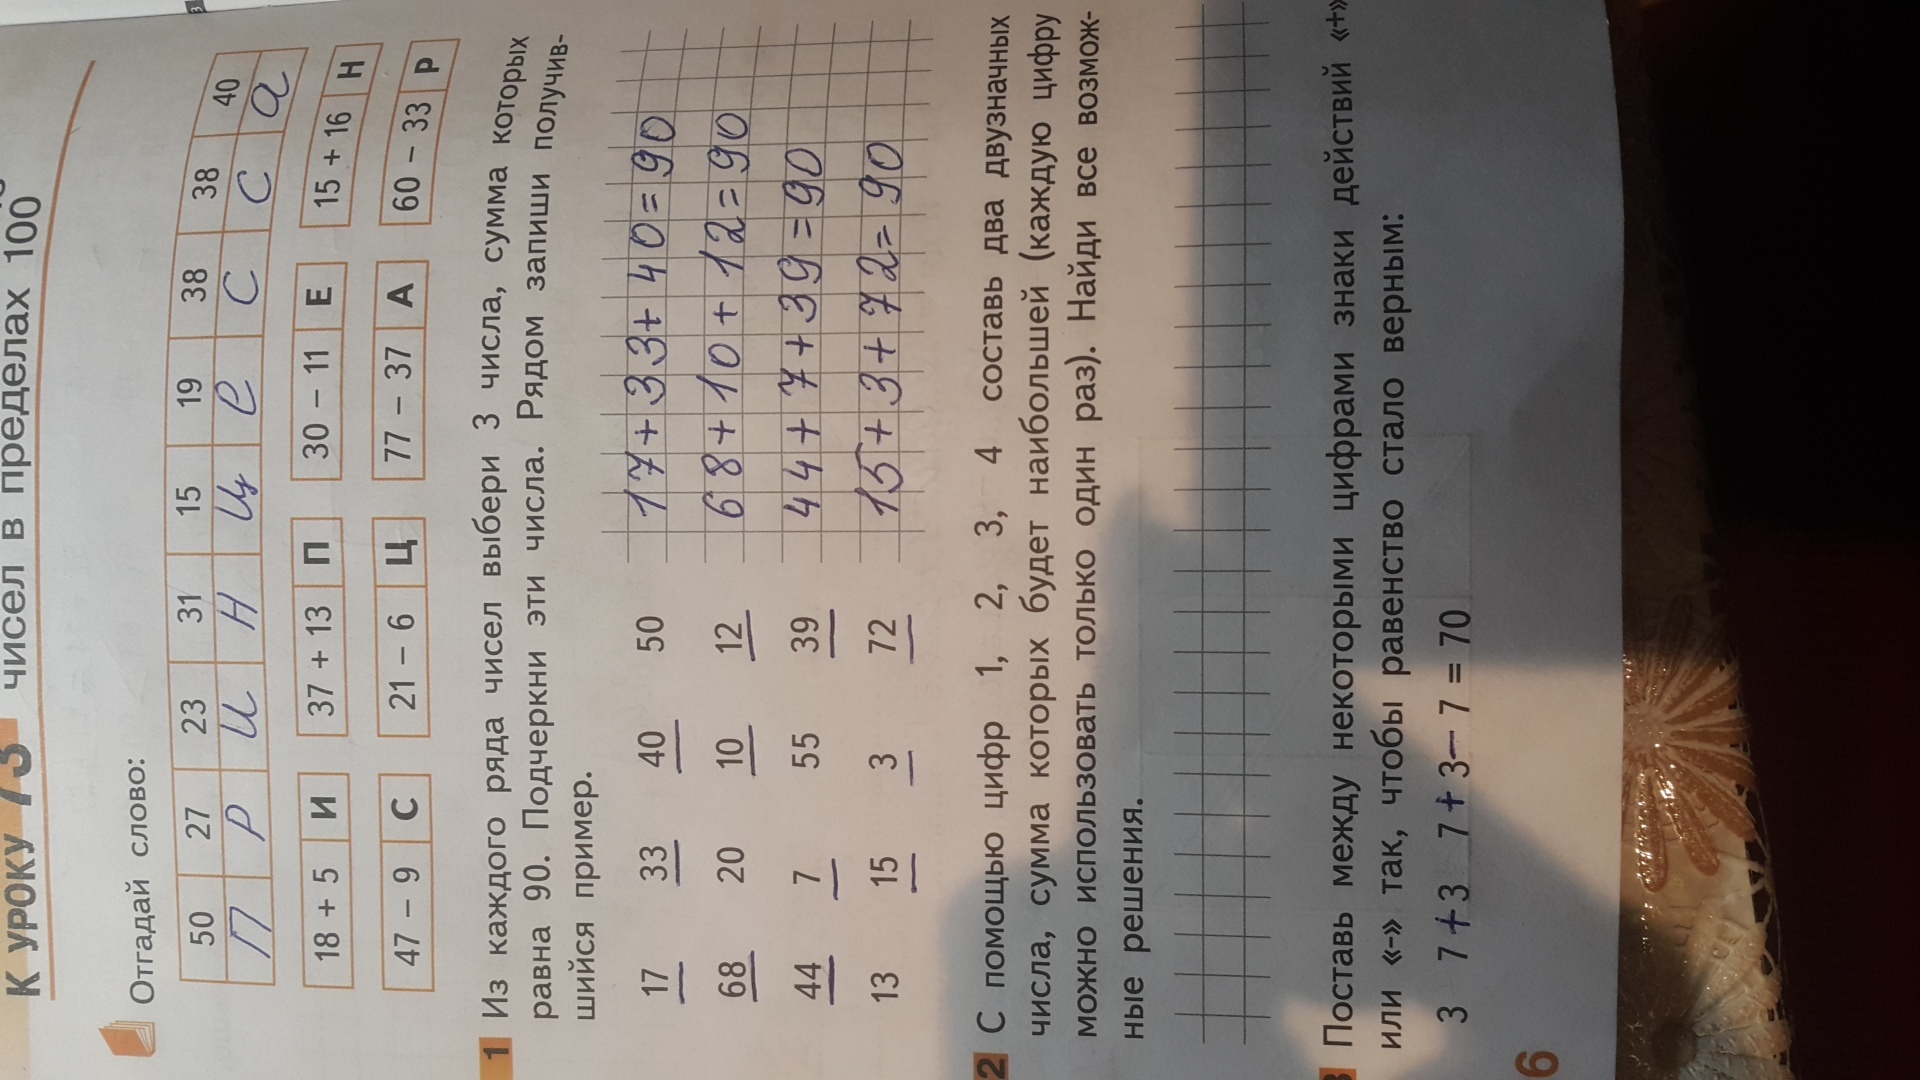 К УРОКУ 73
чисел в пределах 100
Отгадай слово:
50 27 23 31 15 19 38 38 40
П Р И Н Ц Е С С а
18 + 5 И 37 + 13 П 30 − 11 Е 15 + 16 Н
47 − 9 С 21 − 6 Ц 77 − 37 А 60 − 33 Р
1 Из каждого ряда чисел выбери 3 числа, сумма которых
равна 90. Подчеркни эти числа. Рядом запиши получив-
шийся пример.
17 33 40 50 17+33+40=90
68 20 10 12 68+10+12=90
44 7 55 39 44+7+39=90
13 15 3 72 15+3+72=90
2 С помощью цифр 1, 2, 3, 4 составь два двузначных
числа, сумма которых будет наибольшей (каждую цифру
можно использовать только один раз). Найди все возмож-
ные решения.
3 Поставь между некоторыми цифрами знаки действий «+»
или «-» так, чтобы равенство стало верным:
3 7+3 7+3−7 = 70
6